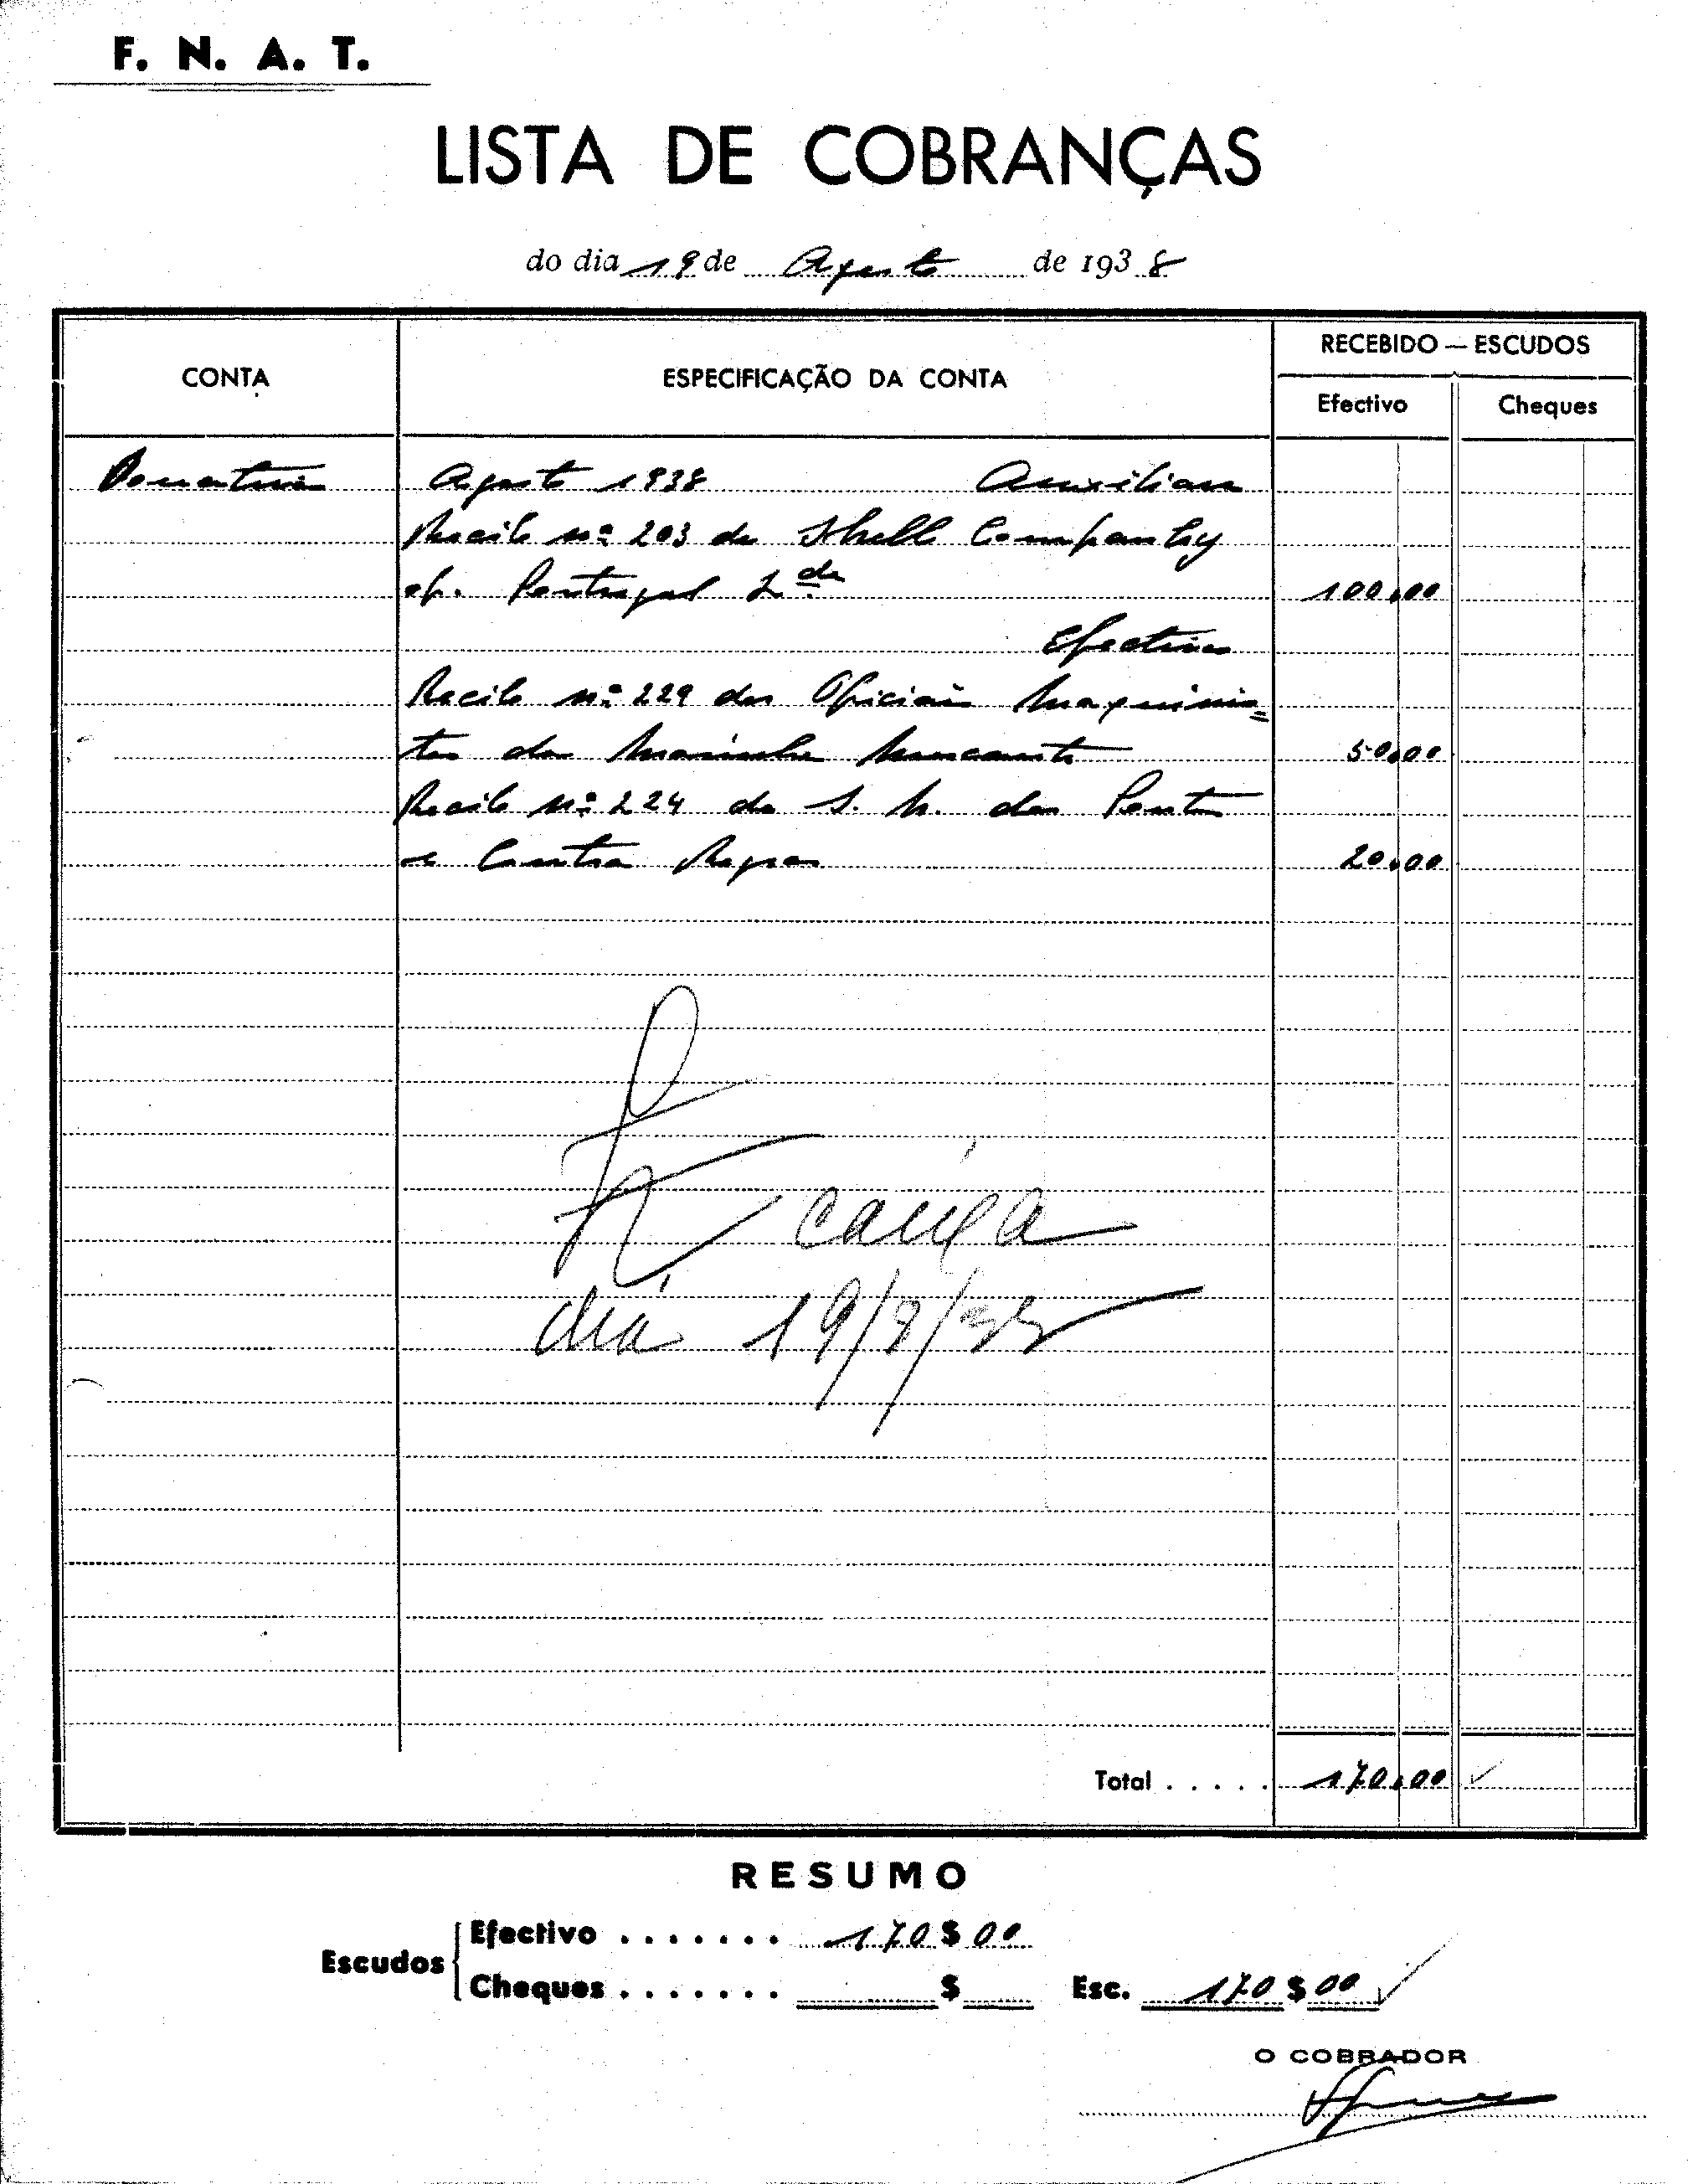 F. N. A. T.
LISTA DE COBRANÇAS
do dia 19 de Agosto de 1938
CONTA
ESPECIFICAÇÃO DA CONTA
RECEBIDO — ESCUDOS
Efectivo
Cheques
Agosto 1938 Auxiliares
Recibo nº 203 da Shell Company
of. Portugal Lda
100,00
Efectivos
Recibo nº 229 dos Oficiais Maquinis=
tas da Marinha Mercante 50,00
Recibo nº 224 do S. N. dos
e Contra Regras 20,00
caixa
dia 19/8/38
Total ..... 170,00
RESUMO
Escudos
Efectivo ....... 170$00
Cheques ....... $
Esc. 170$00
O COBRADOR